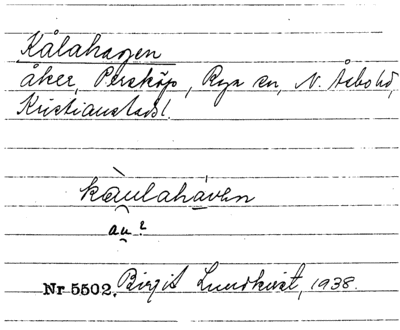 Kålahagen
åker, Persköp, Rya sn, N. Åsbo hd,
Kristianstads l.
kàulaháven
au?
Nr 5502. Birgit Lundkvist, 1938.